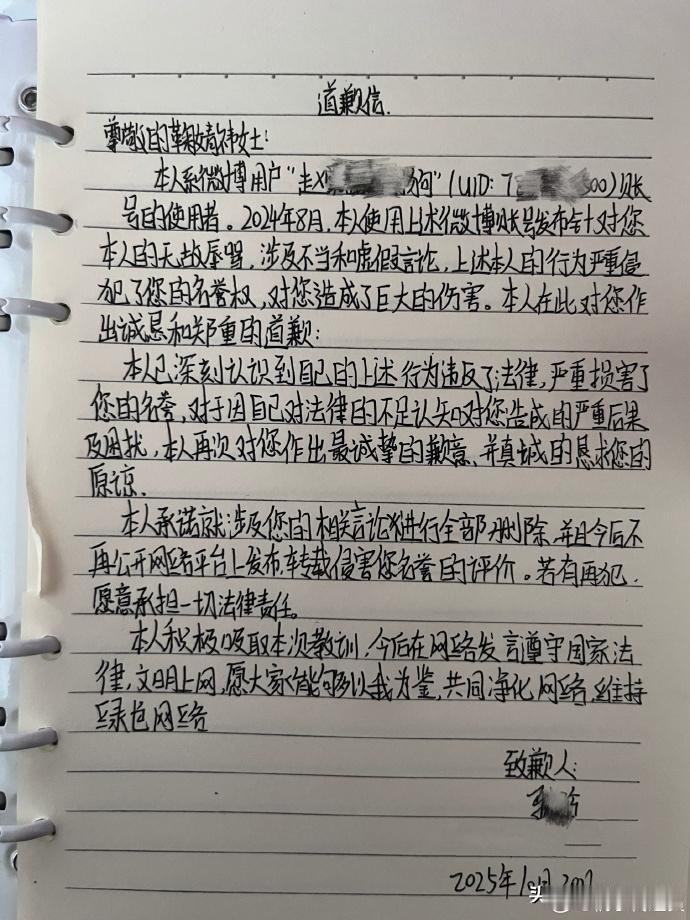 道歉信.
尊敬的鞠婧祎女士:
本人系微博用户"赵 狗"(UID:7 500)账
号的使用者。2024年8月,本人使用上述微博账号发布针对您
本人的无故辱骂,涉及不当和虚假言论,上述本人的行为严重侵
犯了您的名誉权,对您造成了巨大的伤害。本人在此对您作
出诚恳和郑重的道歉:
本人已深刻认识到自己的上述行为违反了法律,严重损害了
您的名誉,对于因自己对法律的不足认知对您造成的严重后果
及困扰,本人再次对您作出最诚挚的歉意,并真诚的恳求您的
原谅.
本人承诺就涉及您的相关言论进行全部删除,并且今后不
再公开网络平台上发布,转载侵害您名誉的评价。若有再犯,
愿意承担一切法律责任。
本人积极吸取本次教训,今后在网络发言遵守国家法
律,文明上网,愿大家能够以我为鉴,共同净化网络,维持
绿色网络
致歉人:
2025年10月
头